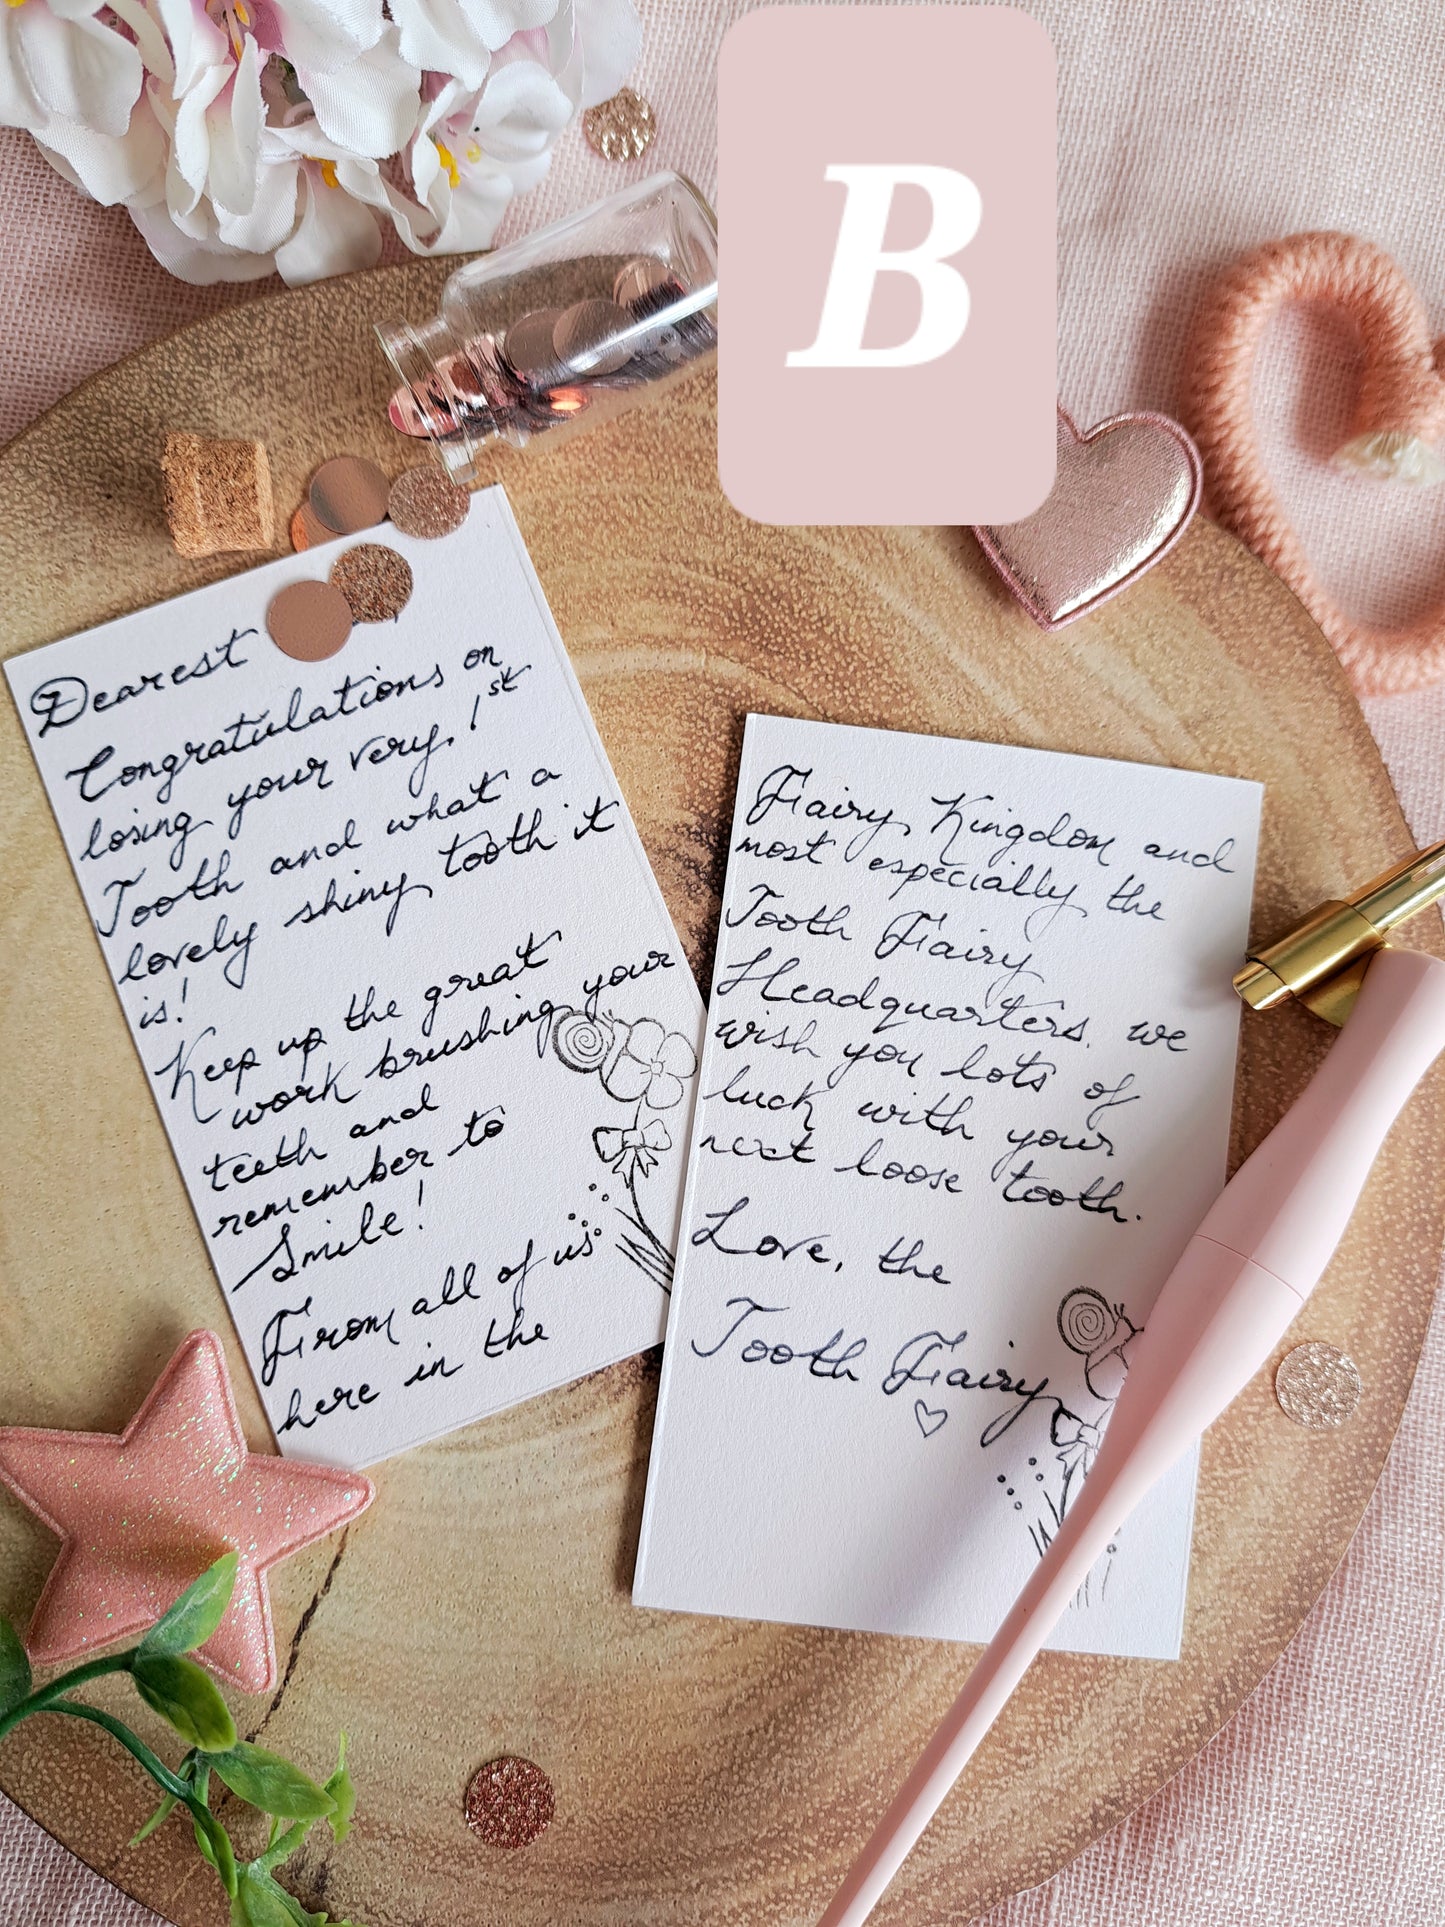 B
Dearest
Congratulations on
losing your very 1st
Tooth and what a
lovely shiny tooth it
is!
Keep up the great
work brushing your
teeth and
remember to
Smile!
From all of us
here in the
Fairy Kingdom and
most especially the
Tooth Fairy
Headquarters, we
wish you lots of
luck with your
next loose tooth.
Love, the
Tooth Fairy